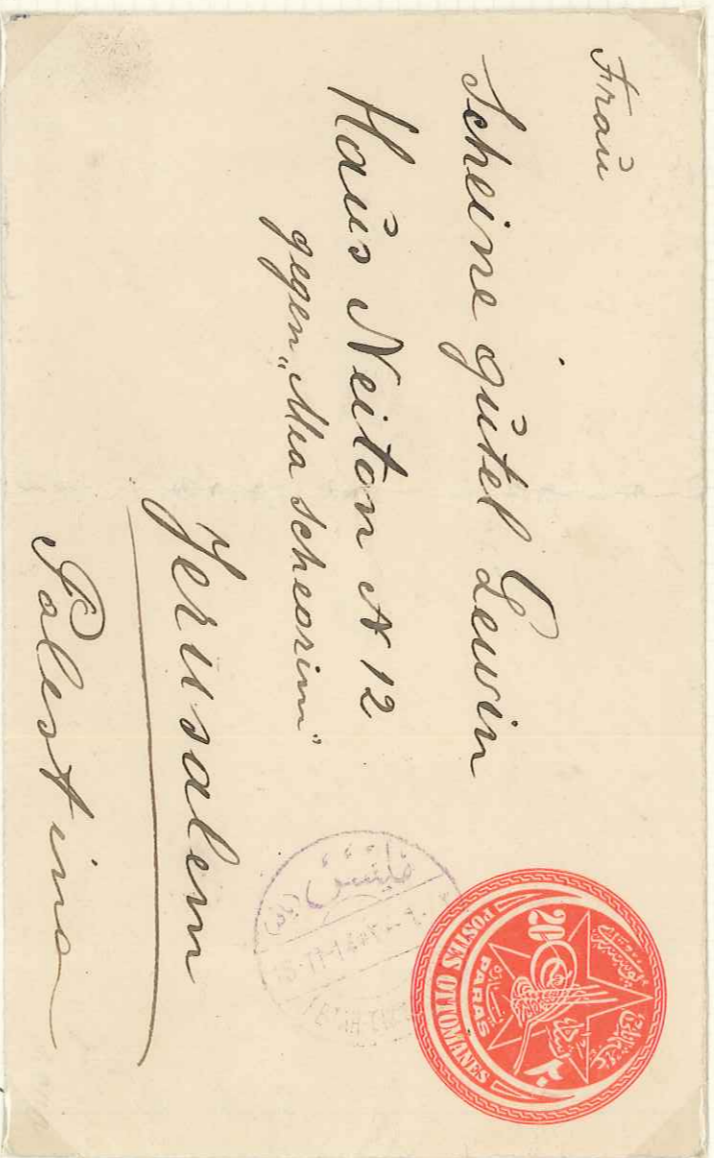 Frau
Scheine gutel Lewin
Haus Neiton № 12
gegen „Mea Scheorim"
Jerusalem
Palestina
20
PARAS
POSTES OTTOMANES
٢٠